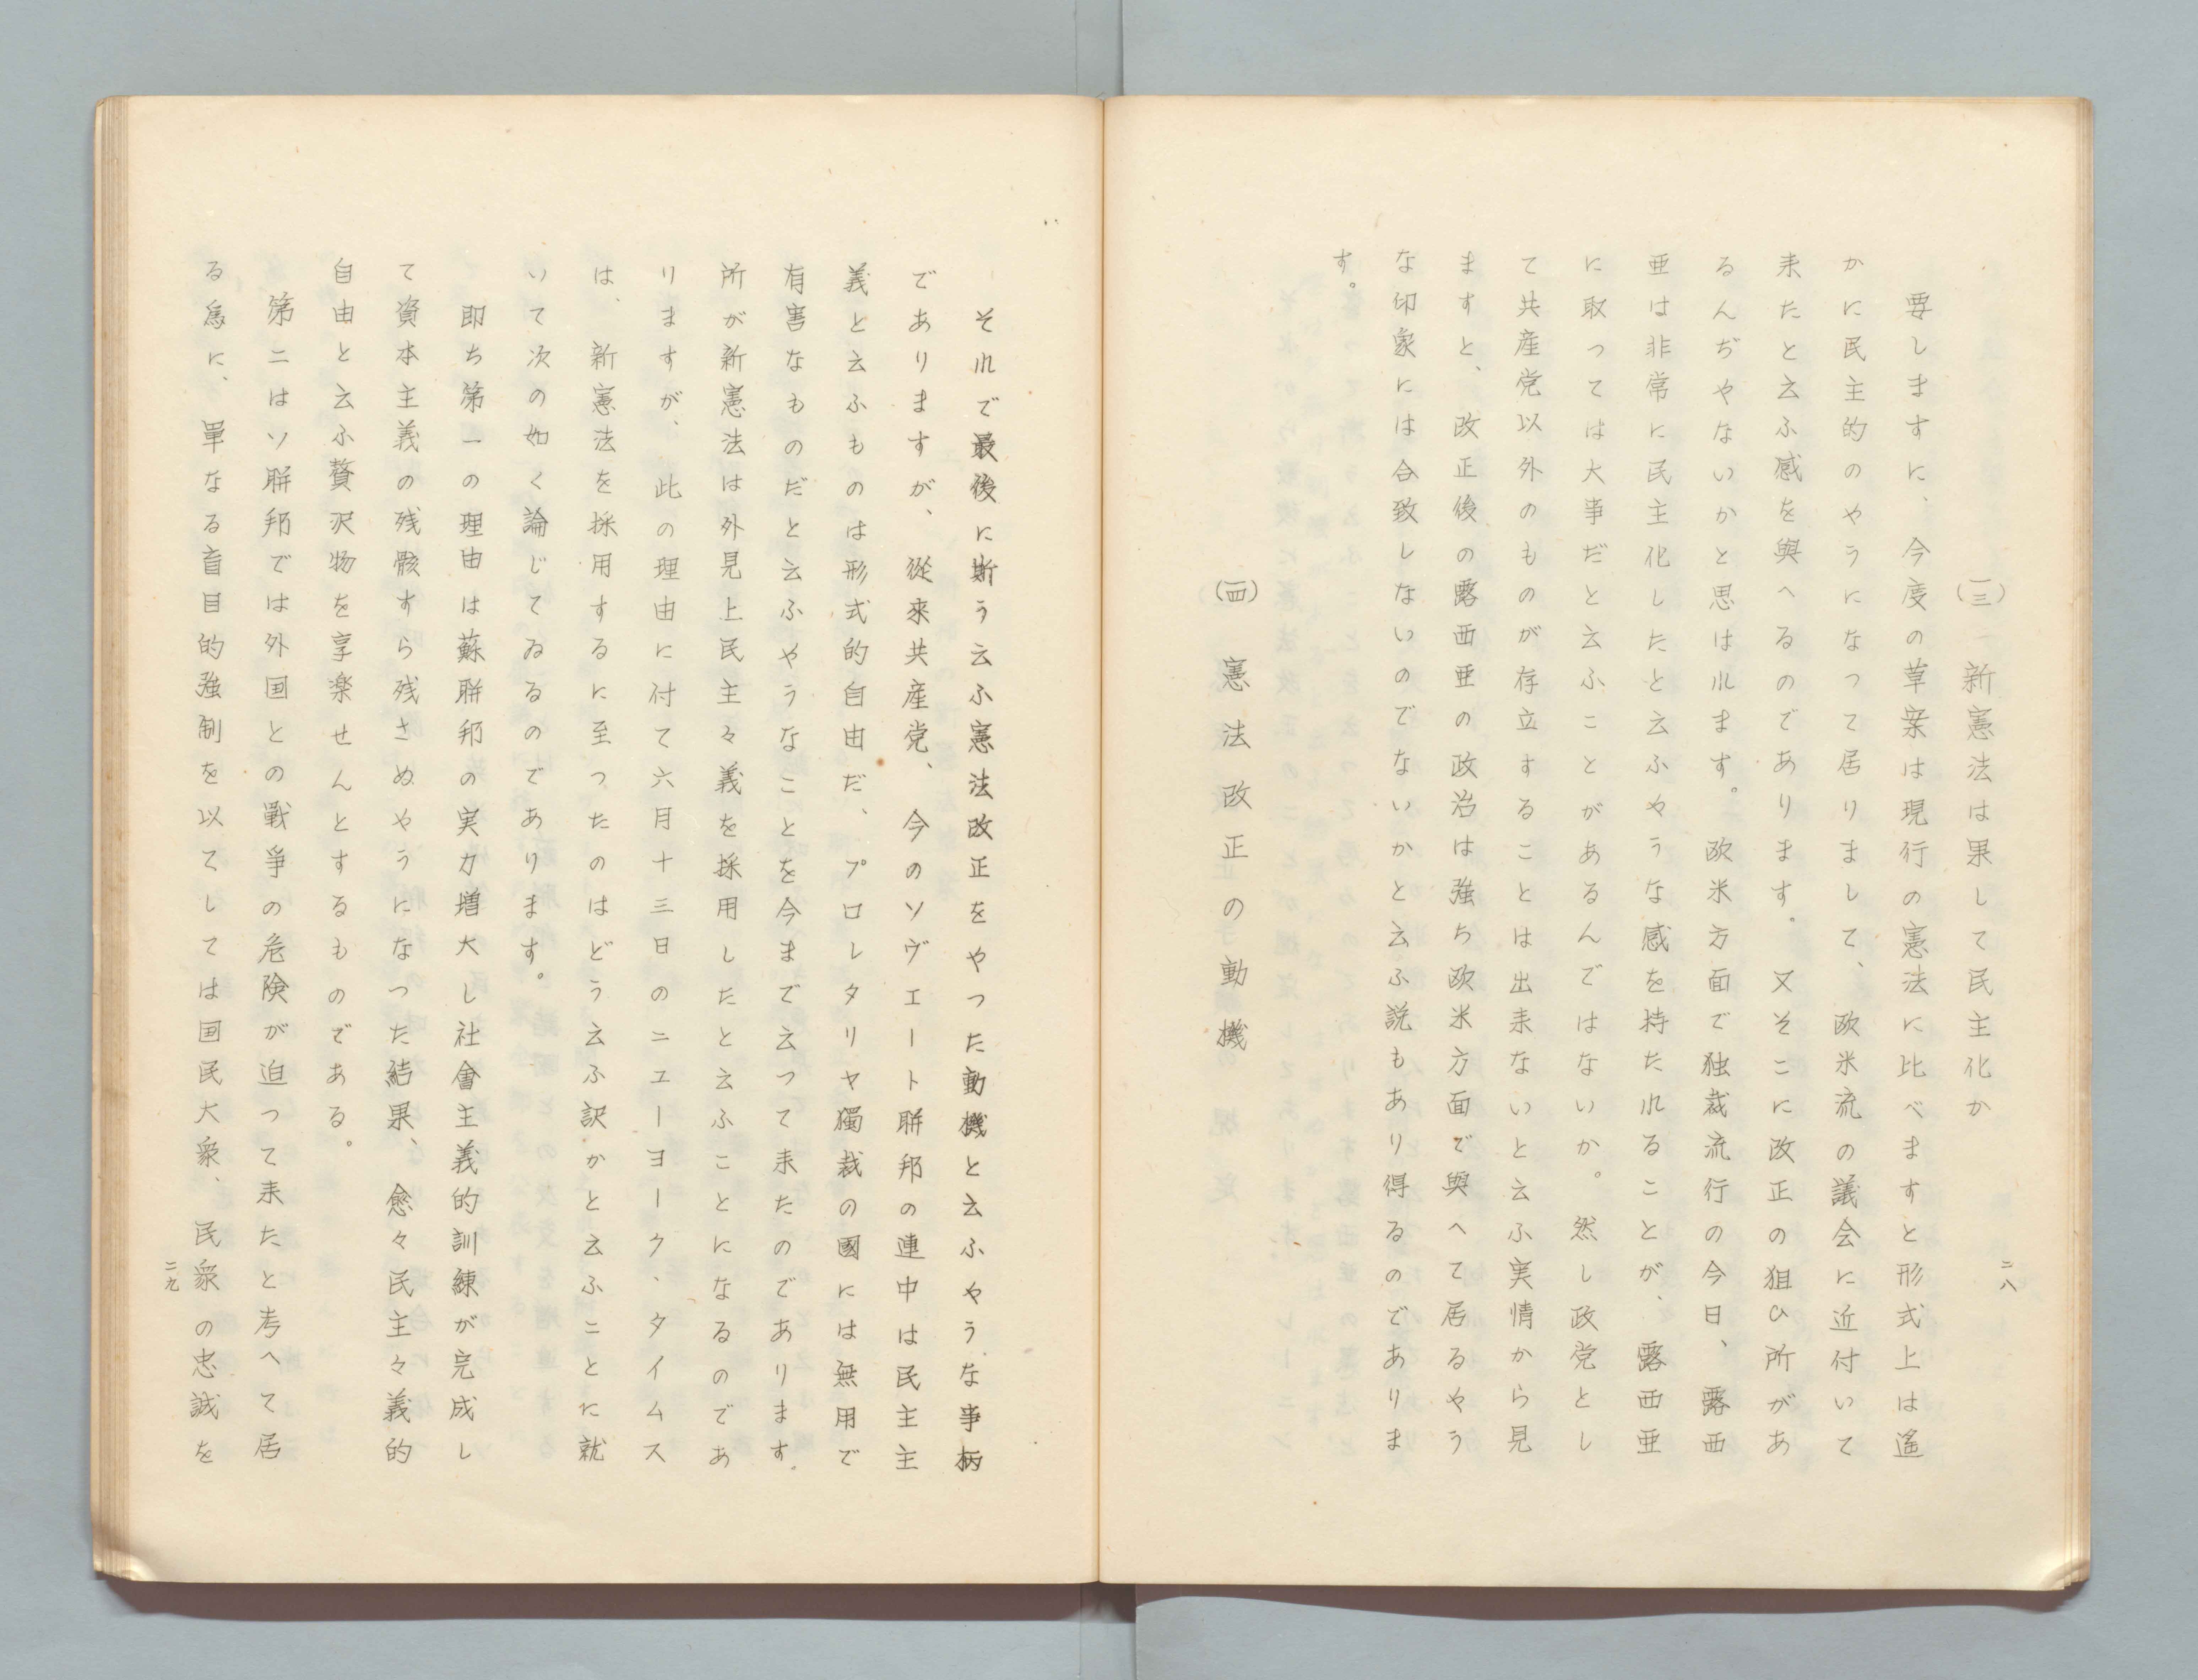 (三)　新憲法は果して民主化か
要しますに、今度の草案は現行の憲法に比べますと形式上は遙
かに民主的のやうになって居りまして、欧米流の議会に近付いて
来たと云ふ感を與へるのであります。又そこに改正の狙ひ所があ
るんぢやないかと思はれます。欧米方面で独裁流行の今日、露西
亜は非常に民主化したと云ふやうな感を持たれることが、露西亜
に取っては大事だと云ふことがあるんではないか。然し政党とし
て共産党以外のものが存立することは出来ないと云ふ実情から見
ますと、改正後の露西亜の政治は強ち欧米方面で與へて居るやう
な印象には合致しないのでないかと云ふ説もあり得るのでありま
す。
(四)　憲法改正の動機
二八
それで最後に斯う云ふ憲法改正をやった動機と云ふやうな事柄
でありますが、從來共産党、今のソヴエート聯邦の連中は民主主
義と云ふものは形式的自由だ、プロレタリヤ獨裁の國には無用で
有害なものだと云ふやうなことを今まで云つて来たのであります。
所が新憲法は外見上民主々義を採用したと云ふことになるのであ
りますが、此の理由に付て六月十三日のニューヨーク、タイムス
は、新憲法を採用するに至つたのはどう云ふ訳かと云ふことに就
いて次の如く論じてゐるのであります。
即ち第一の理由は蘇聯邦の実力増大し社會主義的訓練が完成し
て資本主義の残骸すら残さぬやうになつた結果、愈々民主々義的
自由と云ふ贅沢物を享楽せんとするものである。
第二はソ聯邦では外国との戰爭の危険が迫つて来たと考へて居
る為に、單なる盲目的強制を以てしては国民大衆、民衆の忠誠を
二九